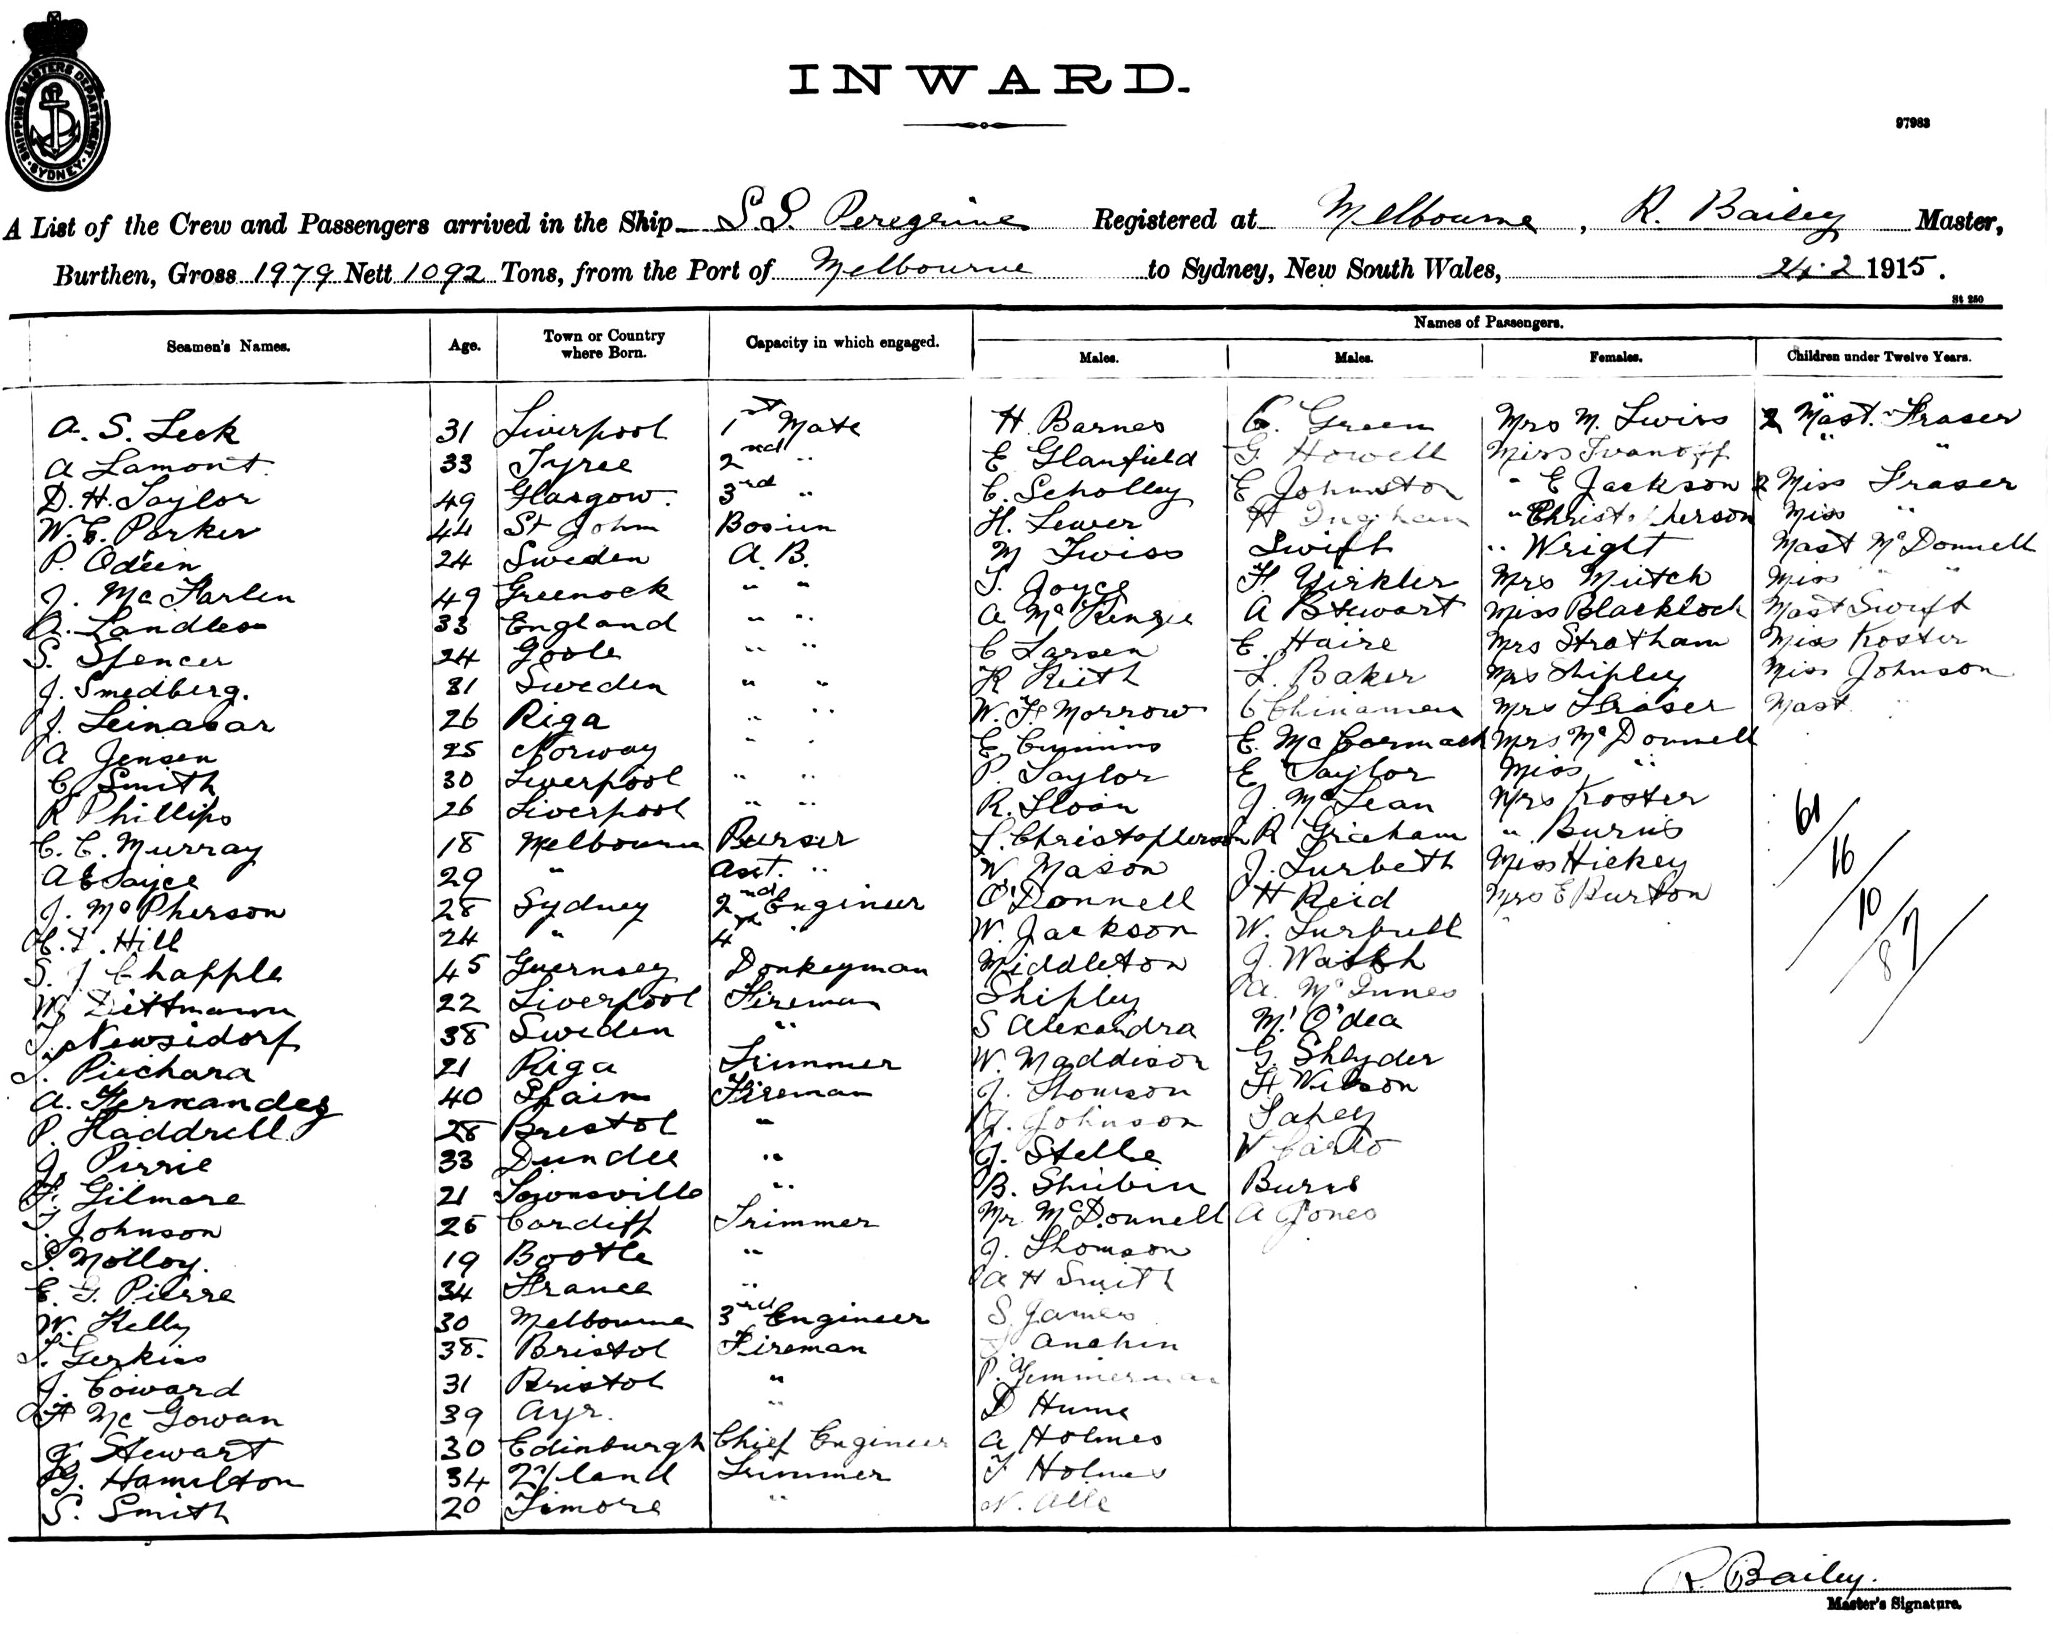 SHIPPING MASTERS DEPARTMENT · SYDNEY ·
INWARD.
97983
A List of the Crew and Passengers arrived in the Ship S.S. Peregrine Registered at Melbourne, R. Bailey Master,
Burthen, Gross 1979 Nett 1092 Tons, from the Port of Melbourne to Sydney, New South Wales, 24.2 1915.
St 250
Names of Passengers.
Seamen's Names. Age. Town or Country where Born. Capacity in which engaged. Males. Males. Females. Children under Twelve Years.
A. S. Leck 31 Liverpool 1st Mate H Barnes C. Green Mrs M. Twiss 2 Mast. Fraser
A Lamont. 33 Tyree 2nd " E Glanfield G Howell Miss Ivanoff " "
D. H. Taylor 49 Glasgow. 3rd " C. Scholley E Johnston " E Jackson 2 Miss Fraser
W. E. Parker 44 St John Bosun H. Lewer H Ingham " Christopherson Miss "
P. Odein 24 Sweden A.B. M Twiss Swift " Wright Mast McDonnell
J. McFarlen 49 Greenock " " S. Joyce F. Yirkler Mrs Mutch Miss " "
A. Landles 33 England " " A McKenzie A Stewart Miss Blacklock Mast Swift
S. Spencer 24 Goole " " C Larsen E. Haire Mrs Stratham Miss Koster
J. Smedberg. 31 Sweden " " R Keith L. Baker Mrs Shipley Miss Johnson
J. Leinasar 26 Riga " " W. F. Morrow C Chinaman Mrs Fraser Mast "
A Jensen 25 Norway " " E. Cummins E. McCormack Mrs McDonnell
C. Smith 30 Liverpool " " P. Taylor E Taylor Miss "
R Phillips 26 Liverpool " " R. Sloan J. McLean Mrs Koster
C. C. Murray 18 Melbourne Purser J. Christopherson R Graham " Burns
A E Sayce 29 " Asst. " W Mason J. Turbeth Miss Hickey
J. McPherson 28 Sydney 2nd Engineer O'Donnell H Reid Mrs E Burton
H. T. Hill 24 " 4th " W. Jackson W. Turbull
S. J Chapple 45 Guernsey Donkeyman Middleton J. Walsh
W. Dittmann 22 Liverpool Fireman Shipley A. McInnes
Newsidorf 38 Sweden " S Alexandra M. O'dea
J. Piechara 21 Riga Trimmer W. Maddison G. Shlyder
A. Hernandez 40 Spain Fireman J. Thomson F Wilson
P. Haddrell 28 Bristol " J. Johnson Lahey
J. Pirrie 33 Dundee " J. Stelle W Carto
F. Gilmore 21 Townsville " B. Shubin Burns
T. Johnson 25 Cardiff Trimmer Mr McDonnell A Jones
S. Molloy. 19 Bootle " J. Thomson
E. G. Pierre 34 France " A H Smith
W. Kelly 30 Melbourne 3rd Engineer S. James
T. Gerkins 38. Bristol Fireman Anchin
J. Coward 31 Bristol " P. Zimmerman
H McGowan 39 Ayr. " D Hume
J. Stewart 30 Edinburgh Chief Engineer A Holmes
G. Hamilton 34 Z'land Trimmer F Holmes
S. Smith 20 Timore " N. Alle
61/
16/
10/
87/
R. Bailey.
Master's Signature.